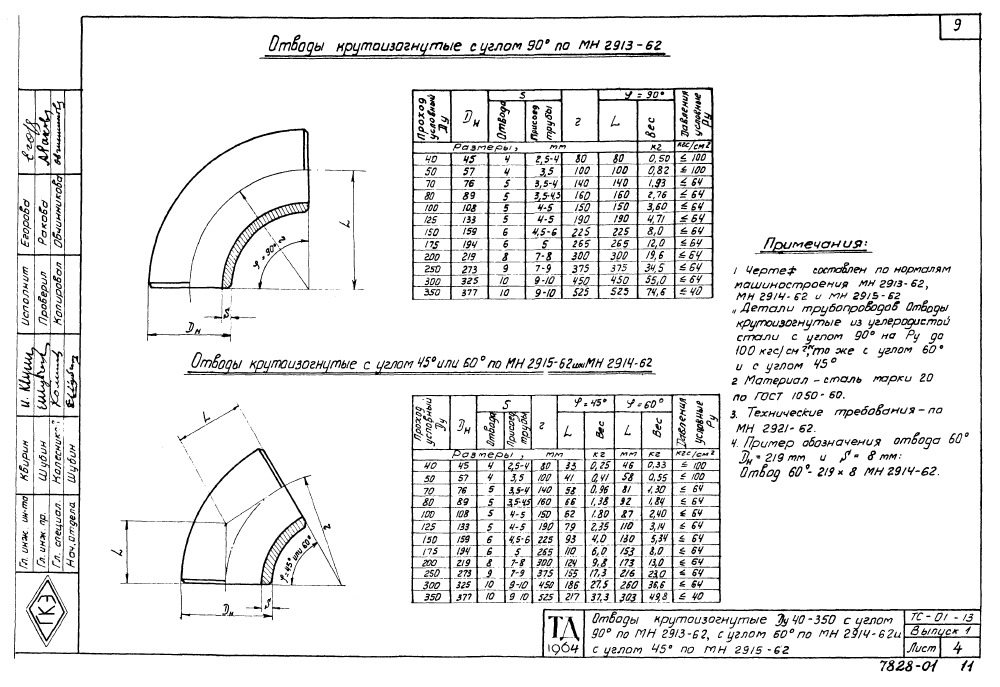 9
Отводы крутоизогнутые с углом 90° по МН 2913-62
Проход условный Ду | Dн | S | г | φ = 90° | Давления условные Ру
Отвода | Присоед трубы | L | Вес
Размеры, мм | кг | кгс/см²
40 45 4 2,5-4 80 80 0,50 ≤ 100
50 57 4 3,5 100 100 0,82 ≤ 100
70 76 5 3,5-4 140 140 1,93 ≤ 64
80 89 5 3,5-4,5 160 160 2,76 ≤ 64
100 108 5 4-5 150 150 3,60 ≤ 64
125 133 5 4-5 190 190 4,71 ≤ 64
150 159 6 4,5-6 225 225 8,0 ≤ 64
175 194 6 5 265 265 12,0 ≤ 64
200 219 8 7-8 300 300 19,6 ≤ 64
250 273 9 7-9 375 375 34,5 ≤ 64
300 325 10 9-10 450 450 55,0 ≤ 64
350 377 10 9-10 525 525 74,6 ≤ 40
φ = 90°
г
L
S
Dн
Отводы крутоизогнутые с углом 45° или 60° по МН 2915-62 или МН 2914-62
Проход условный Ду | Dн | S | г | φ = 45° | φ = 60° | Давления условные Ру
Отвода | Присоед трубы | L | Вес | L | Вес
Размеры, мм | кг | мм | кг | кгс/см²
40 45 4 2,5-4 80 33 0,25 46 0,33 ≤ 100
50 57 4 3,5 100 41 0,41 58 0,55 ≤ 100
70 76 5 3,5-4 140 58 0,96 81 1,30 ≤ 64
80 89 5 3,5-4,5 160 66 1,38 92 1,84 ≤ 64
100 108 5 4-5 150 62 1,80 87 2,40 ≤ 64
125 133 5 4-5 190 79 2,35 110 3,14 ≤ 64
150 159 6 4,5-6 225 93 4,0 130 5,34 ≤ 64
175 194 6 5 265 110 6,0 153 8,0 ≤ 64
200 219 8 7-8 300 124 9,8 173 13,0 ≤ 64
250 273 9 7-9 375 155 17,3 216 23,0 ≤ 64
300 325 10 9-10 450 186 27,5 260 36,6 ≤ 64
350 377 10 9 10 525 217 37,3 303 49,8 ≤ 40
L
L
г
φ = 45° или 60°
S
Dн
Примечания:
1 Чертеж составлен по нормалям
машиностроения МН 2913-62,
МН 2914-62 и МН 2915-62
„Детали трубопроводов Отводы
крутоизогнутые из углеродистой
стали с углом 90° на Ру до
100 кгс/см²", то же с углом 60°
и с углом 45°
2 Материал – сталь марки 20
по ГОСТ 1050-60.
3. Технические требования – по
МН 2921-62.
4. Пример обозначения отвода 60°
Dн = 219 мм и S = 8 мм:
Отвод 60°-219 х 8 МН 2914-62.
Исполнит Егорова
Проверил Ракова
Копировал Овчинникова
Гл. инж. ин-та Квирин
Гл. инж. пр. Шубин
Гл. специал.
Нач. отдела Шубин
ГКЭ
ТД
1964
Отводы крутоизогнутые Ду 40-350 с углом
90° по МН 2913-62, с углом 60° по МН 2914-62 и
с углом 45° по МН 2915-62
ТС-01-13
Выпуск 1
Лист 4
7828-01 11